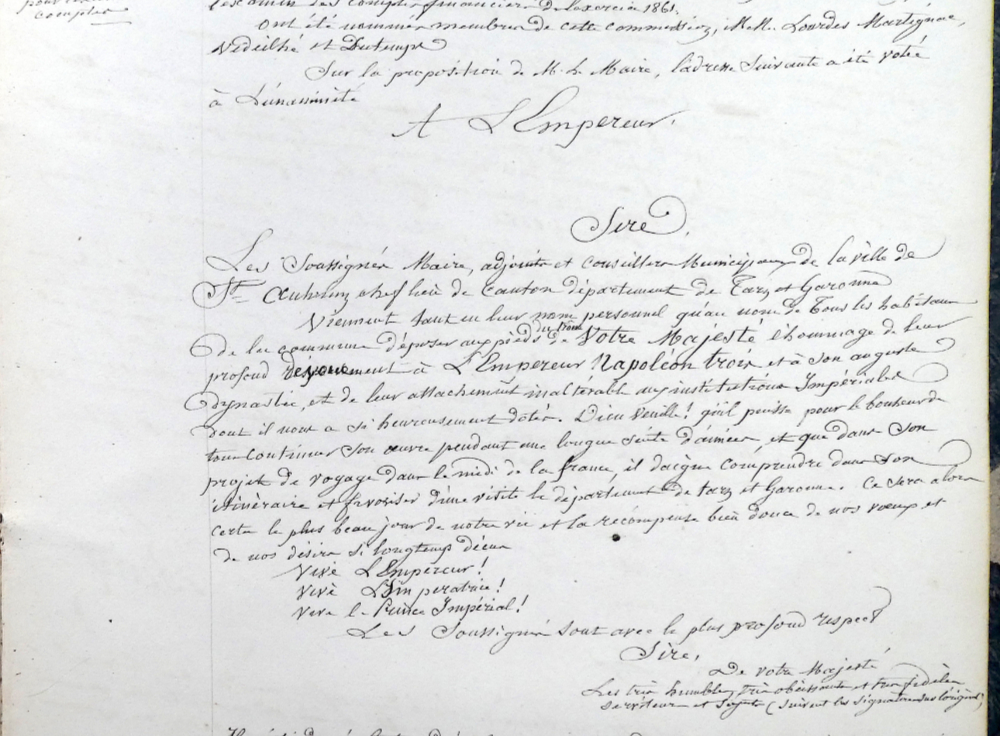 pour
compter
l'examen des comptes financiers de l'exercice 1861.
Ont été nommés membres de cette commission, M.M. Lourdes Martignac,
Védeilhé et Dutemps
Sur la proposition de M. le Maire, l'adresse suivante a été votée
à l'unanimité
A L'Empereur.
Sire,
Les Soussignés Maire, adjoints et conseillers Municipaux de la ville de
St chef lieu de Canton département de Tarn et Garonne
Viennent tant en leur nom personnel qu'au nom de Tous les habitans
du trône
de la commune déposer aux pieds de Votre Majesté l'hommage de leur
profond dévouement à L'Empereur Napoléon trois et à son auguste
dynastie, et de leur attachement inaltérable aux institutions Impériales
dont il nous a si heureusement dotés. Dieu veuille! qu'il puisse pour le bonheur de
tous continuer son œuvre pendant une longue suite d'années, et que dans son
projet de voyage dans le midi de la france, il daigne comprendre dans son
itinéraire et favoriser d'une visite le département de tarn et Garonne. Ce sera alors
certe le plus beau jour de notre vie et la récompense bien douce de nos vœux et
de nos désirs si longtemps déçus
Vive L'Empereur!
Vive L'Impératrice!
Vive le Prince Impérial!
Les Soussignés sont avec le plus profond respect
Sire,
De votre Majesté
Les très humbles, très obéissants et très fidèles
serviteurs et sujets (suivent les signatures sur l'original)